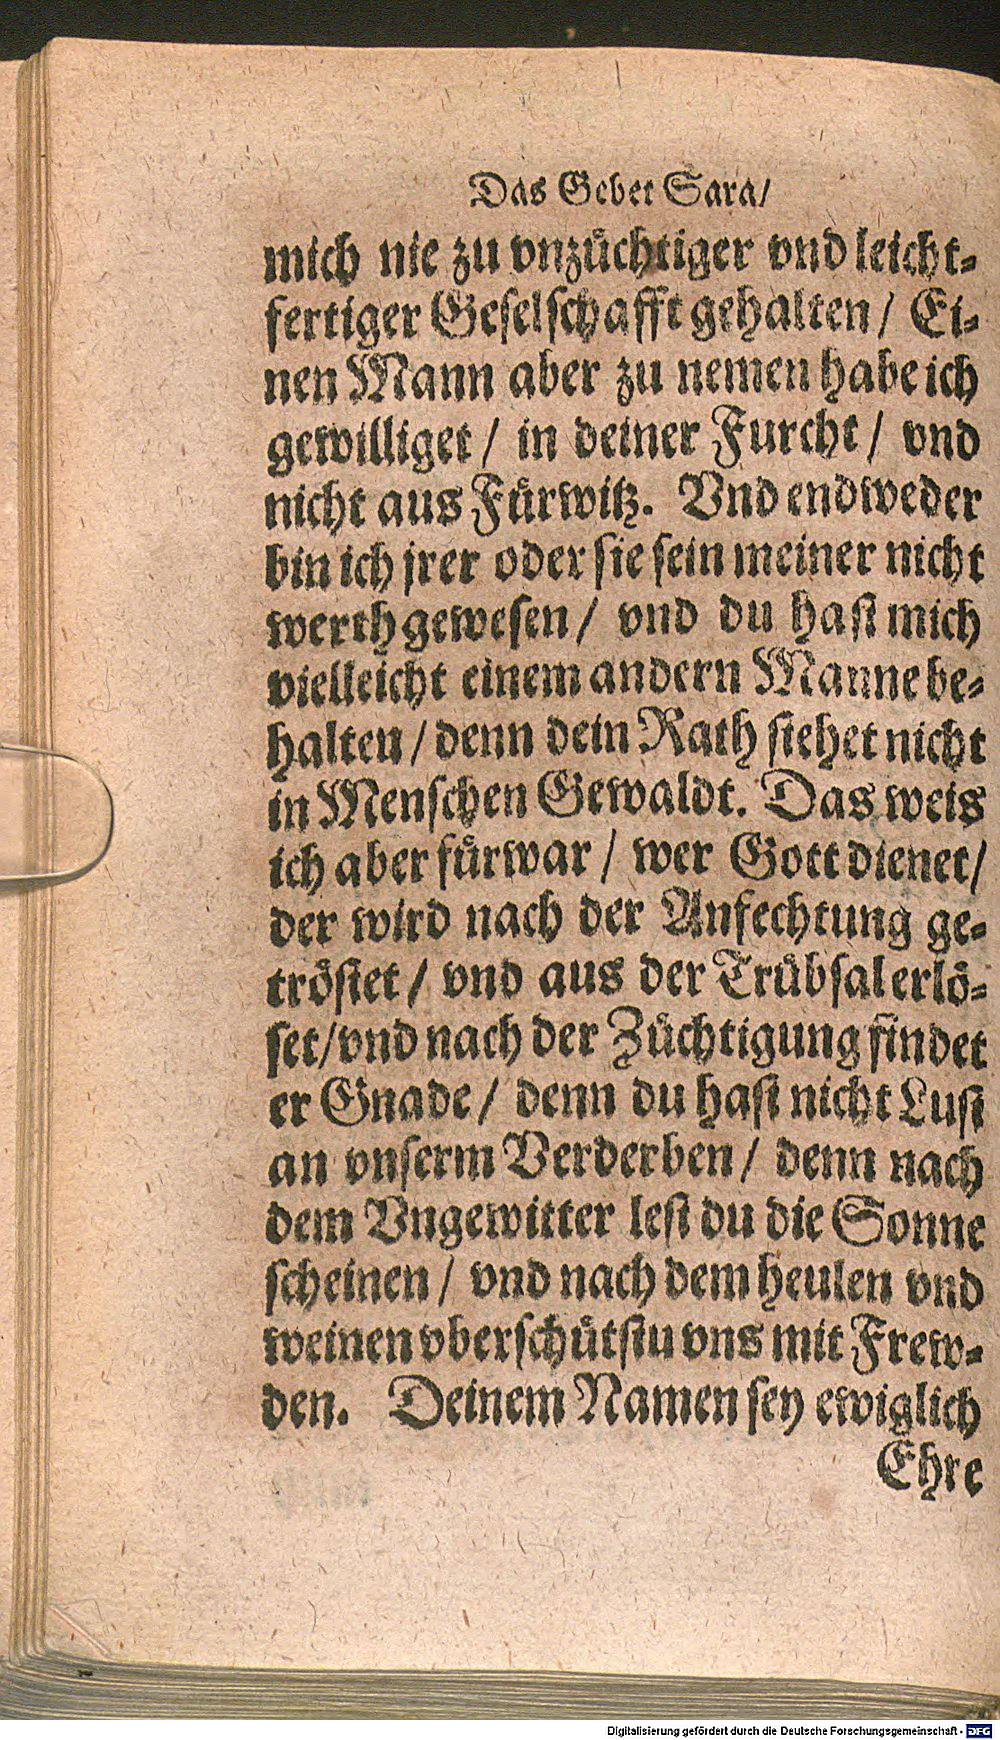 Das Gebet Sara/
mich nie zu vnzüchtiger vnd leicht-
fertiger Geselschafft gehalten / Ei-
nen Mann aber zu nemen habe ich
gewilliget / in deiner Furcht / vnd
nicht aus Fürwitz. Vnd endweder
bin ich jrer oder sie sein meiner nicht
werth gewesen / vnd du hast mich
vielleicht einem andern Manne be-
halten / denn dein Rath stehet nicht
in Menschen Gewaldt. Das weis
ich aber fürwar / wer Gott dienet/
der wird nach der Anfechtung ge-
tröstet / vnd aus der Trübsal erlö-
set/vnd nach der Züchtigung findet
er Gnade / denn du hast nicht Lust
an vnserm Verderben / denn nach
dem Vngewitter lest du die Sonne
scheinen / vnd nach dem heulen vnd
weinen vberschütstu vns mit Frew-
den. Deinem Namen sey ewiglich
Ehre
Digitalisierung gefördert durch die Deutsche Forschungsgemeinschaft - DFG